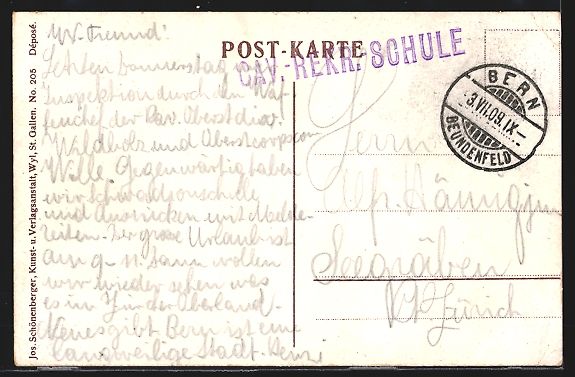 Jos. Schönenberger, Kunst- u. Verlagsanstalt, Wyl, St. Gallen. No. 205 Déposé.
POST-KARTE
CAV.-REKR. SCHULE
BERN
3.VII.09.IX-
BEUNDENFELD
Freund!
Letzten Donnerstag
Inspektion durch den Waf-
fenchef der Cav. Oberstdiv.
Wildbolz und Oberstcorpscom
Wille. Gegenwärtig haben
wir Schwadronschule
und ausrücken mit Melde-
reiten. Der grosse Urlaub ist
am 9-11. dann wollen
wir wieder sehen was
es im Zürcher Oberland
Neues gibt. Bern ist eine
langweilige Stadt.
Herrn
Alf.
Seegräben
Kt. Zürich